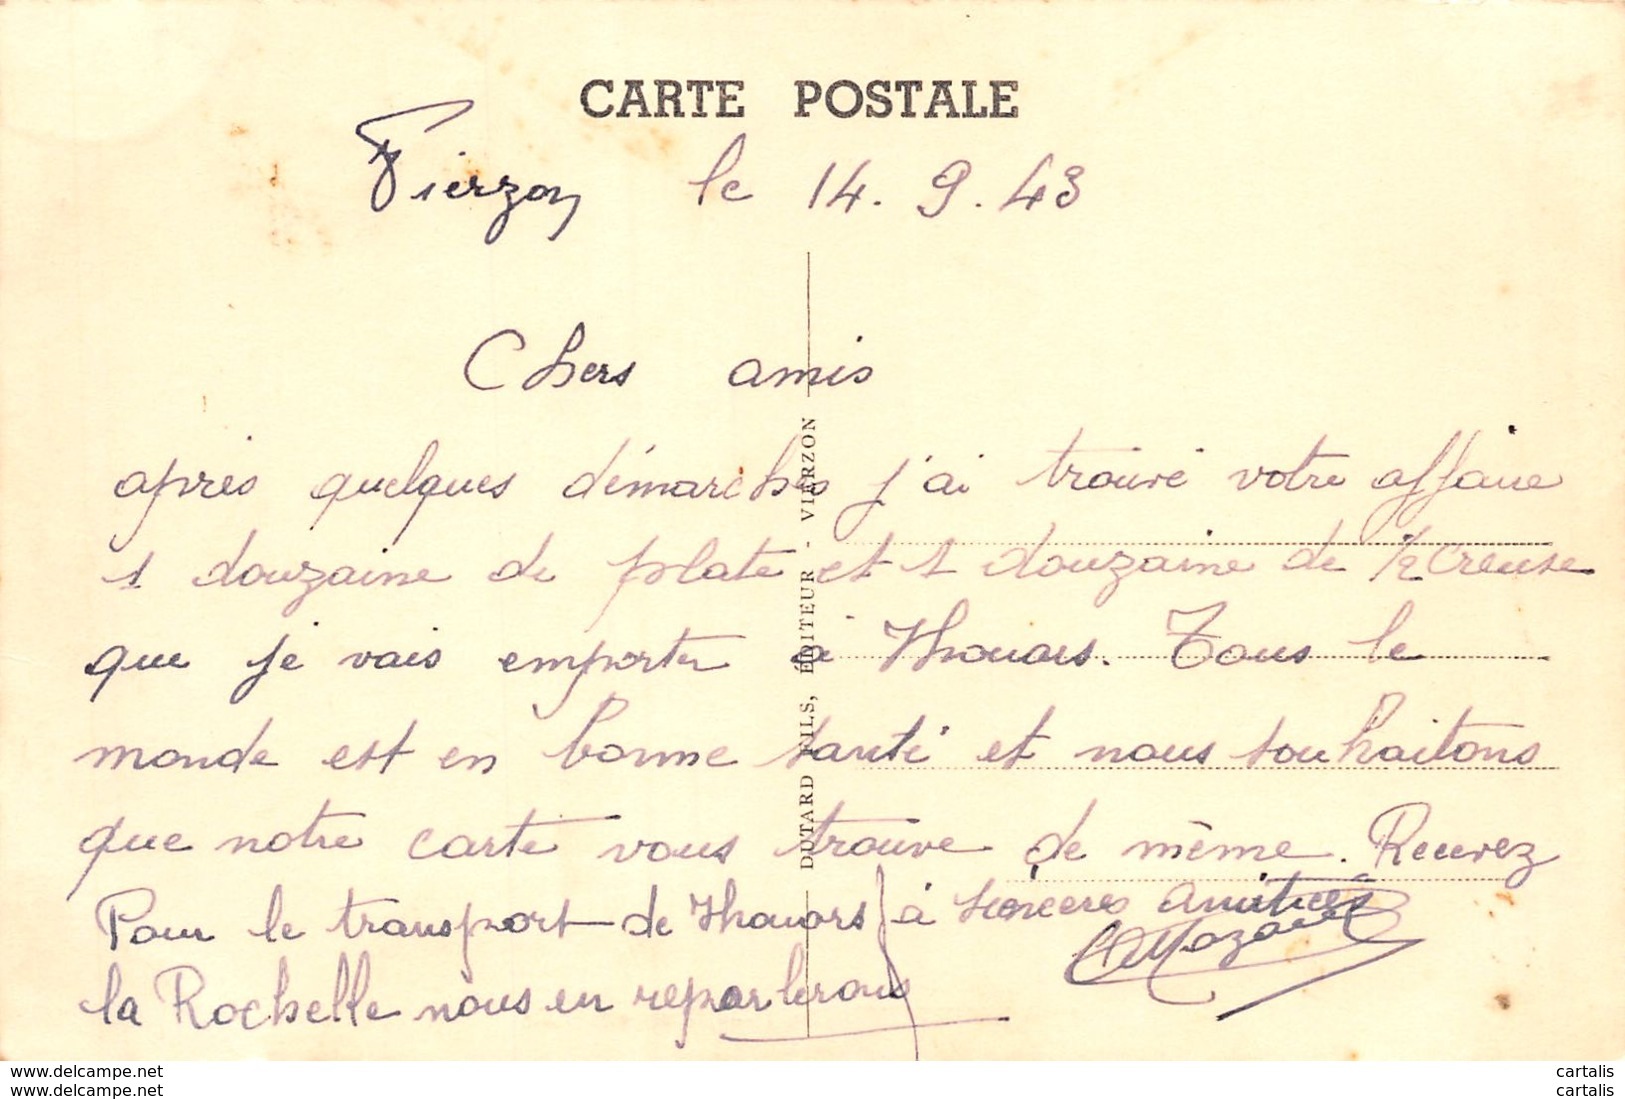 CARTE POSTALE
Vierzon le 14.9.43
Chers amis
après quelques démarches j'ai trouvé votre affaire
1 douzaine de plate et 1 douzaine de 1/2 creuse
que je vais emporter à Thouars. Tous le
monde est en bonne santé et nous souhaitons
que notre carte vous trouve de même. Recevez
sincères amitiées
Pour le transport de Thouars à
la Rochelle nous en reparlerons
DUTARD FILS, ÉDITEUR - VIERZON
delcampe.net
cartalis
delcampe.net
cartalis